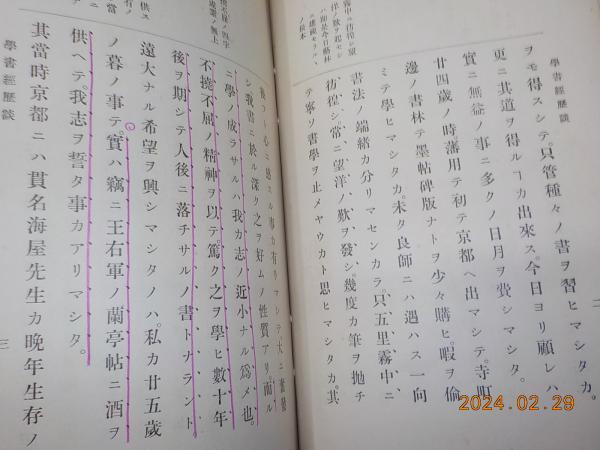 學書經歷談
二
ヲモ得スシテ。只管種々ノ書ヲ習ヒマシタカ。
更ニ其道ヲ得ルヿカ出來ス。今日ヨリ顧レハ
實ニ無益ノ事ニ多クノ日月ヲ費シマシタ。
廿四歳ノ時藩用テ初テ京都ヘ出マシテ。寺町
邊ノ書林テ墨帖碑版ナトヲ少々購ヒ。暇ヲ偷
ミテ學ヒマシタカ。未タ良師ニハ遇ハス一向
書法ノ端緒カ分リマセンカラ。只五里霧中ニ
彷徨シ。常ニ望洋ノ歎ヲ發シ。幾度カ筆ヲ抛チ
テ寧ソ書學ヲ止メヤウカト思ヒマシタカ。其
洋ノ歎ヲ起セシ
ハ即是今日翰林
ノ根本
心ニ感スル事カ有リマシテ大ニ奮發
シ我書ニ於ル深ク之ヲ好ムノ性質アリ。而ル
ニ學ノ成ラサルハ我カ志ノ近小ナル爲メ也。
不撓不屈ノ精神ヲ以テ。篤ク之ヲ學ヒ數十年
後ヲ期シテ人後ニ落チサルノ書トナラント
遠大ナル希望ヲ興シマシタノハ。私カ廿五歳
ノ暮ノ事テ。實ハ竊ニ王右軍ノ蘭亭帖ニ酒ヲ
供ヘテ。我志ヲ誓タ事カアリマシタ。
其當時京都ニハ貫名海屋先生カ晩年生存ノ
學書經歷談
三
2024.02.29